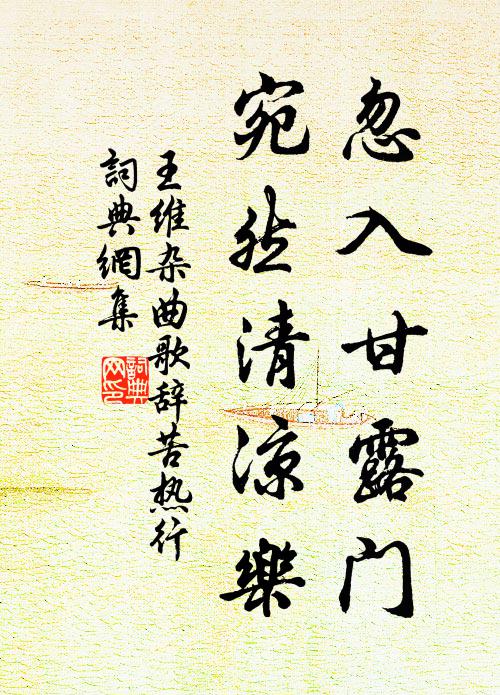 忽入甘露门
宛然清涼樂
王维杂曲歌辞苦热行
詞典網集
詞典
网印